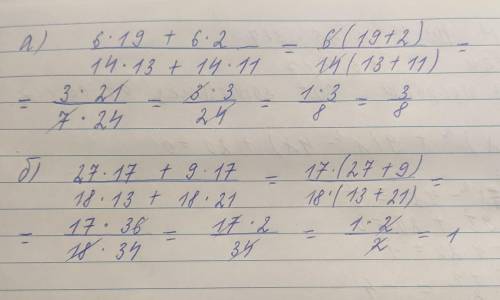 а) (6·19 + 6·2)/(14·13 + 14·11) = (6(19+2))/(14(13+11)) =
= (3·21)/(7·24) = (3·3)/24 = (1·3)/8 = 3/8
б) (27·17 + 9·17)/(18·13 + 18·21) = (17·(27+9))/(18·(13+21)) =
= (17·36)/(18·34) = (17·2)/34 = (1·2)/2 = 1